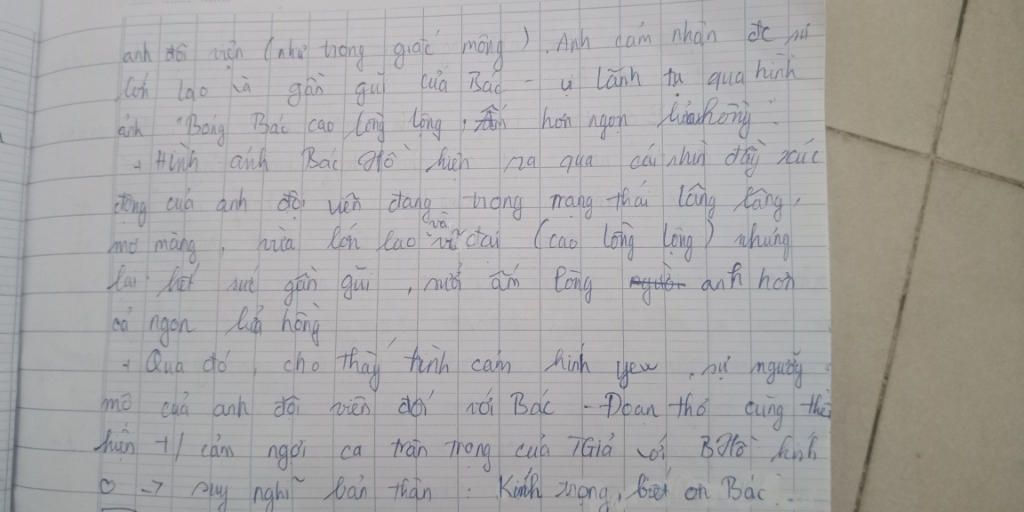 anh đội viên (như trong giấc mộng). Anh cảm nhận đc sự
lớn lao và gần gũi của Bác - vị lãnh tụ qua hình
ảnh "Bóng Bác cao lồng lộng, Ấm hơn ngọn lửa hồng"
+ Hình ảnh Bác Hồ hiện ra qua cái nhìn đầy xúc
động của anh đội viên đang trong trạng thái lâng lâng,
mơ màng, vừa lớn lao và vĩ đại (cao lồng lộng) nhưng
lại hết sức gần gũi, sưởi ấm lòng anh hơn
cả ngọn lửa hồng
+ Qua đó, cho thấy tình cảm kính yêu, sự ngưỡng
mộ của anh đội viên đối với Bác - Đoạn thơ cũng thể
hiện t/ cảm ngợi ca trân trọng của TGiả với BHồ kính
-> suy nghĩ bản thân: Kính trọng, biết ơn Bác.